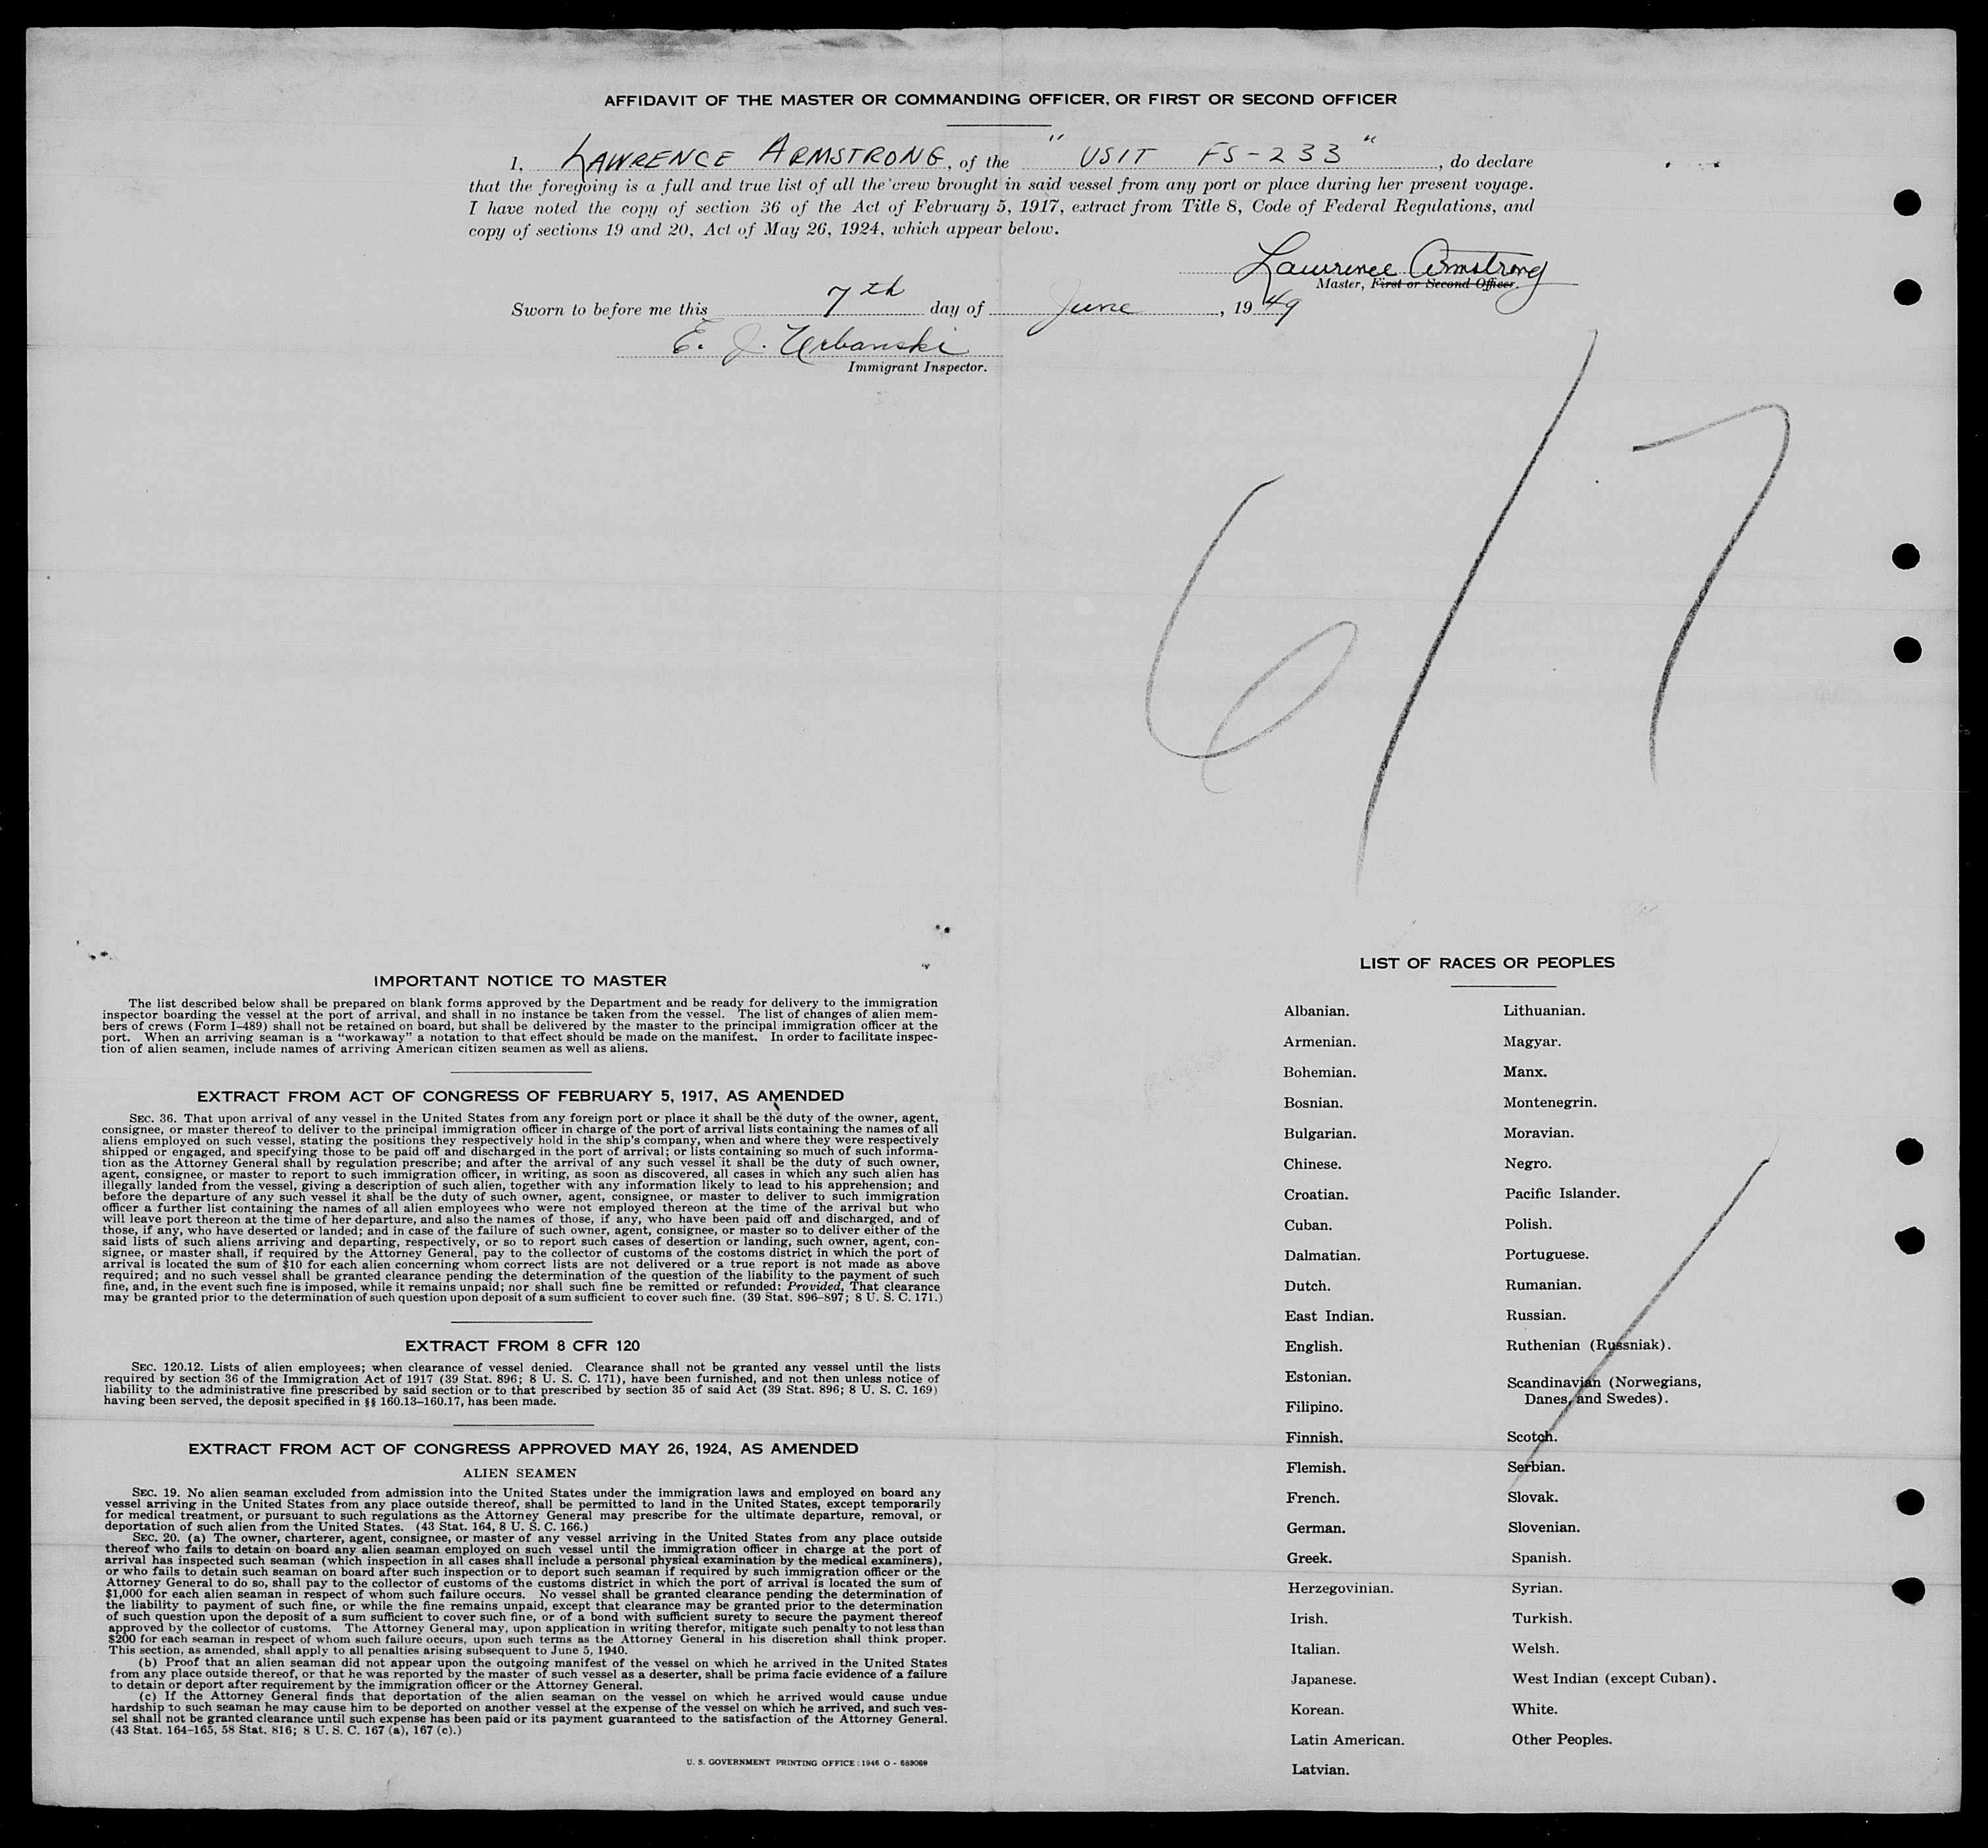 AFFIDAVIT OF THE MASTER OR COMMANDING OFFICER, OR FIRST OR SECOND OFFICER
I, LAWRENCE ARMSTRONG, of the "USIT FS-233", do declare
that the foregoing is a full and true list of all the crew brought in said vessel from any port or place during her present voyage.
I have noted the copy of section 36 of the Act of February 5, 1917, extract from Title 8, Code of Federal Regulations, and
copy of sections 19 and 20, Act of May 26, 1924, which appear below.
Lawrence Armstrong
Master, First or Second Officer.
Sworn to before me this 7th day of June, 1949
E. J. Urbanski
Immigrant Inspector.
6/7
IMPORTANT NOTICE TO MASTER
The list described below shall be prepared on blank forms approved by the Department and be ready for delivery to the immigration
inspector boarding the vessel at the port of arrival, and shall in no instance be taken from the vessel. The list of changes of alien mem-
bers of crews (Form I-489) shall not be retained on board, but shall be delivered by the master to the principal immigration officer at the
port. When an arriving seaman is a "workaway" a notation to that effect should be made on the manifest. In order to facilitate inspec-
tion of alien seamen, include names of arriving American citizen seamen as well as aliens.
EXTRACT FROM ACT OF CONGRESS OF FEBRUARY 5, 1917, AS AMENDED
SEC. 36. That upon arrival of any vessel in the United States from any foreign port or place it shall be the duty of the owner, agent,
consignee, or master thereof to deliver to the principal immigration officer in charge of the port of arrival lists containing the names of all
aliens employed on such vessel, stating the positions they respectively hold in the ship's company, when and where they were respectively
shipped or engaged, and specifying those to be paid off and discharged in the port of arrival; or lists containing so much of such informa-
tion as the Attorney General shall by regulation prescribe; and after the arrival of any such vessel it shall be the duty of such owner,
agent, consignee, or master to report to such immigration officer, in writing, as soon as discovered, all cases in which any such alien has
illegally landed from the vessel, giving a description of such alien, together with any information likely to lead to his apprehension; and
before the departure of any such vessel it shall be the duty of such owner, agent, consignee, or master to deliver to such immigration
officer a further list containing the names of all alien employees who were not employed thereon at the time of the arrival but who
will leave port thereon at the time of her departure, and also the names of those, if any, who have been paid off and discharged, and of
those, if any, who have deserted or landed; and in case of the failure of such owner, agent, consignee, or master so to deliver either of the
said lists of such aliens arriving and departing, respectively, or so to report such cases of desertion or landing, such owner, agent, con-
signee, or master shall, if required by the Attorney General, pay to the collector of customs of the costoms district in which the port of
arrival is located the sum of $10 for each alien concerning whom correct lists are not delivered or a true report is not made as above
required; and no such vessel shall be granted clearance pending the determination of the question of the liability to the payment of such
fine, and, in the event such fine is imposed, while it remains unpaid; nor shall such fine be remitted or refunded: Provided, That clearance
may be granted prior to the determination of such question upon deposit of a sum sufficient to cover such fine. (39 Stat. 896-897; 8 U. S. C. 171.)
EXTRACT FROM 8 CFR 120
SEC. 120.12. Lists of alien employees; when clearance of vessel denied. Clearance shall not be granted any vessel until the lists
required by section 36 of the Immigration Act of 1917 (39 Stat. 896; 8 U. S. C. 171), have been furnished, and not then unless notice of
liability to the administrative fine prescribed by said section or to that prescribed by section 35 of said Act (39 Stat. 896; 8 U. S. C. 169)
having been served, the deposit specified in §§ 160.13-160.17, has been made.
EXTRACT FROM ACT OF CONGRESS APPROVED MAY 26, 1924, AS AMENDED
ALIEN SEAMEN
SEC. 19. No alien seaman excluded from admission into the United States under the immigration laws and employed on board any
vessel arriving in the United States from any place outside thereof, shall be permitted to land in the United States, except temporarily
for medical treatment, or pursuant to such regulations as the Attorney General may prescribe for the ultimate departure, removal, or
deportation of such alien from the United States. (43 Stat. 164, 8 U. S. C. 166.)
SEC. 20. (a) The owner, charterer, agent, consignee, or master of any vessel arriving in the United States from any place outside
thereof who fails to detain on board any alien seaman employed on such vessel until the immigration officer in charge at the port of
arrival has inspected such seaman (which inspection in all cases shall include a personal physical examination by the medical examiners),
or who fails to detain such seaman on board after such inspection or to deport such seaman if required by such immigration officer or the
Attorney General to do so, shall pay to the collector of customs of the customs district in which the port of arrival is located the sum of
$1,000 for each alien seaman in respect of whom such failure occurs. No vessel shall be granted clearance pending the determination of
the liability to payment of such fine, or while the fine remains unpaid, except that clearance may be granted prior to the determination
of such question upon the deposit of a sum sufficient to cover such fine, or of a bond with sufficient surety to secure the payment thereof
approved by the collector of customs. The Attorney General may, upon application in writing therefor, mitigate such penalty to not less than
$200 for each seaman in respect of whom such failure occurs, upon such terms as the Attorney General in his discretion shall think proper.
This section, as amended, shall apply to all penalties arising subsequent to June 5, 1940.
(b) Proof that an alien seaman did not appear upon the outgoing manifest of the vessel on which he arrived in the United States
from any place outside thereof, or that he was reported by the master of such vessel as a deserter, shall be prima facie evidence of a failure
to detain or deport after requirement by the immigration officer or the Attorney General.
(c) If the Attorney General finds that deportation of the alien seaman on the vessel on which he arrived would cause undue
hardship to such seaman he may cause him to be deported on another vessel at the expense of the vessel on which he arrived, and such ves-
sel shall not be granted clearance until such expense has been paid or its payment guaranteed to the satisfaction of the Attorney General.
(43 Stat. 164-165, 58 Stat. 816; 8 U. S. C. 167 (a), 167 (c).)
U. S. GOVERNMENT PRINTING OFFICE : 1946 O - 683069
LIST OF RACES OR PEOPLES
Albanian.
Armenian.
Bohemian.
Bosnian.
Bulgarian.
Chinese.
Croatian.
Cuban.
Dalmatian.
Dutch.
East Indian.
English.
Estonian.
Filipino.
Finnish.
Flemish.
French.
German.
Greek.
Herzegovinian.
Irish.
Italian.
Japanese.
Korean.
Latin American.
Latvian.
Lithuanian.
Magyar.
Manx.
Montenegrin.
Moravian.
Negro.
Pacific Islander.
Polish.
Portuguese.
Rumanian.
Russian.
Ruthenian (Russniak).
Scandinavian (Norwegians,
Danes, and Swedes).
Scotch.
Serbian.
Slovak.
Slovenian.
Spanish.
Syrian.
Turkish.
Welsh.
West Indian (except Cuban).
White.
Other Peoples.